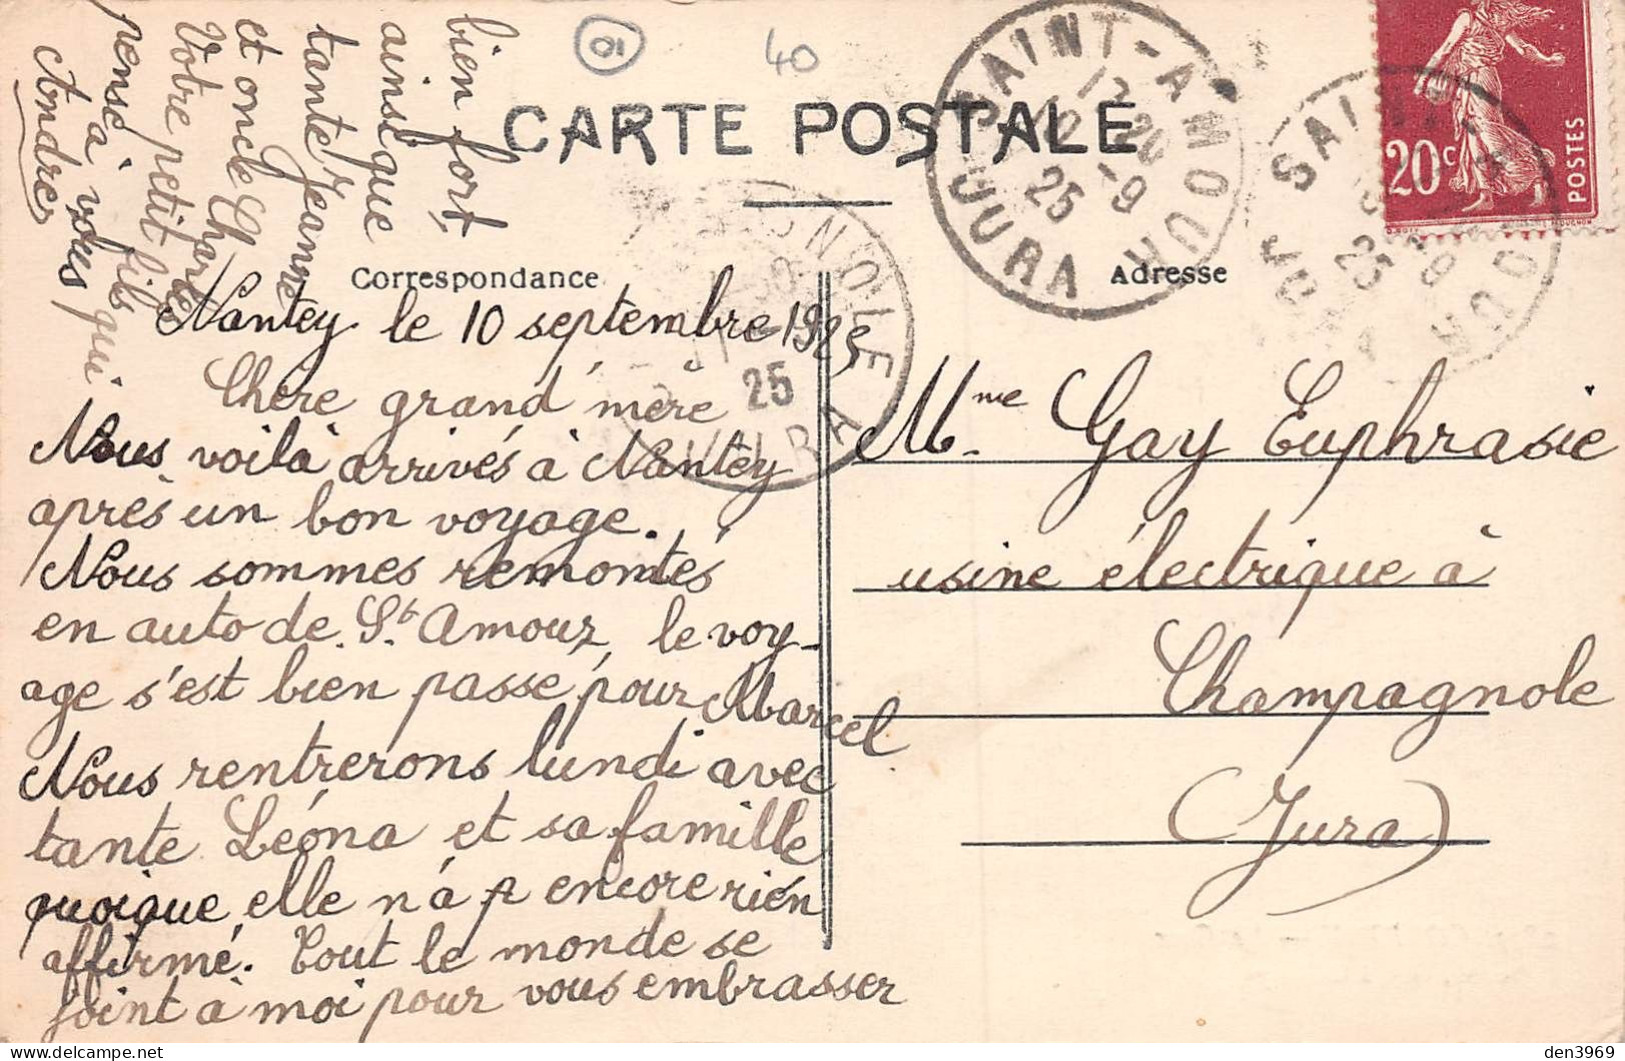 01
40
CARTE POSTALE
SAINT-AMOUR
12 20
10 -9
25
JURA
SAINT-AMOUR
25
-9
JURA
20c
POSTES
CHAMPAGNOLE
25
JURA
Correspondance
Adresse
Nantey le 10 septembre 1925
Chère grand'mère
Nous voilà arrivés à Nantey
après un bon voyage.
Nous sommes remontés
en auto de St Amour, le voy-
age s'est bien passé pour Marcel
Nous rentrerons lundi avec
tante Léona et sa famille
quoique elle n'a p encore rien
affirmé. Tout le monde se
joint à moi pour vous embrasser
bien fort,
ainsi que
tante Jeanne
et oncle Charles
Votre petit fils
pense à vous qui
Andre
Mme Gay Euphrasie
usine électrique à
Champagnole
(Jura)
den3969